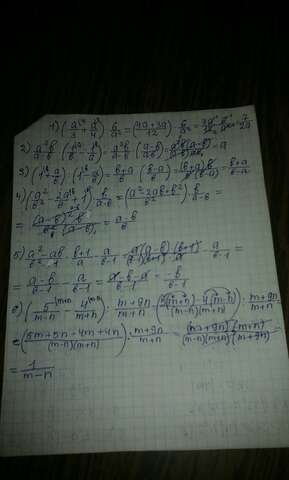 1) (a/3 + a/4) · 6/a² = (4a+3a/12) · 6/a² = 7a · 6/12 · a² = 7/2a
2) a²b/a-b · (1/b - 1/a) = a²b/a-b · (a-b/ab) = a²b(a-b)/(a-b)ab = a
3) (1 + b/a) : (1 - b/a) = b+a/a : (b-a/a) = (b+a)a/a(b-a) = b+a/b-a
4) (a²/b² - 2a/b + 1) · b/a-b = (a²-2ab+b²/b²) · b/a-b =
= (a-b)² · b/b² (a-b) = a-b/b
5) a²-ab/b²-1 · b+1/a - a/b-1 = a(a-b)(b+1)/(b-1)(b+1)a - a/b-1 =
= a-b/b-1 - a/b-1 = a-b-a/b-1 = -b/b-1
6) (5/m-n - 4/m+n) : m+9n/m+n = (5(m+n)-4(m-n)/(m-n)(m+n)) : m+9n/m+n
= (5m+5n-4m+4n/(m-n)(m+n)) : m+9n/m+n = (m+9n)(m+n)/(m-n)(m+n)(m+9n) =
= 1/m-n